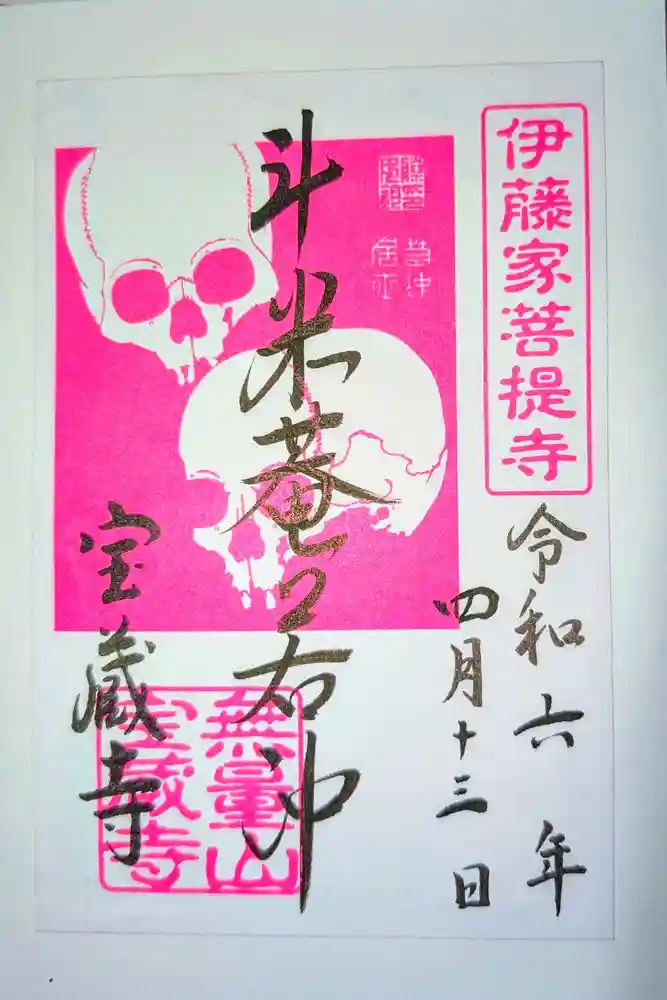 伊藤家菩提寺
令和六年
四月十三日
斗米菴若冲
若冲
居士
宝蔵寺
無量山
宝蔵寺